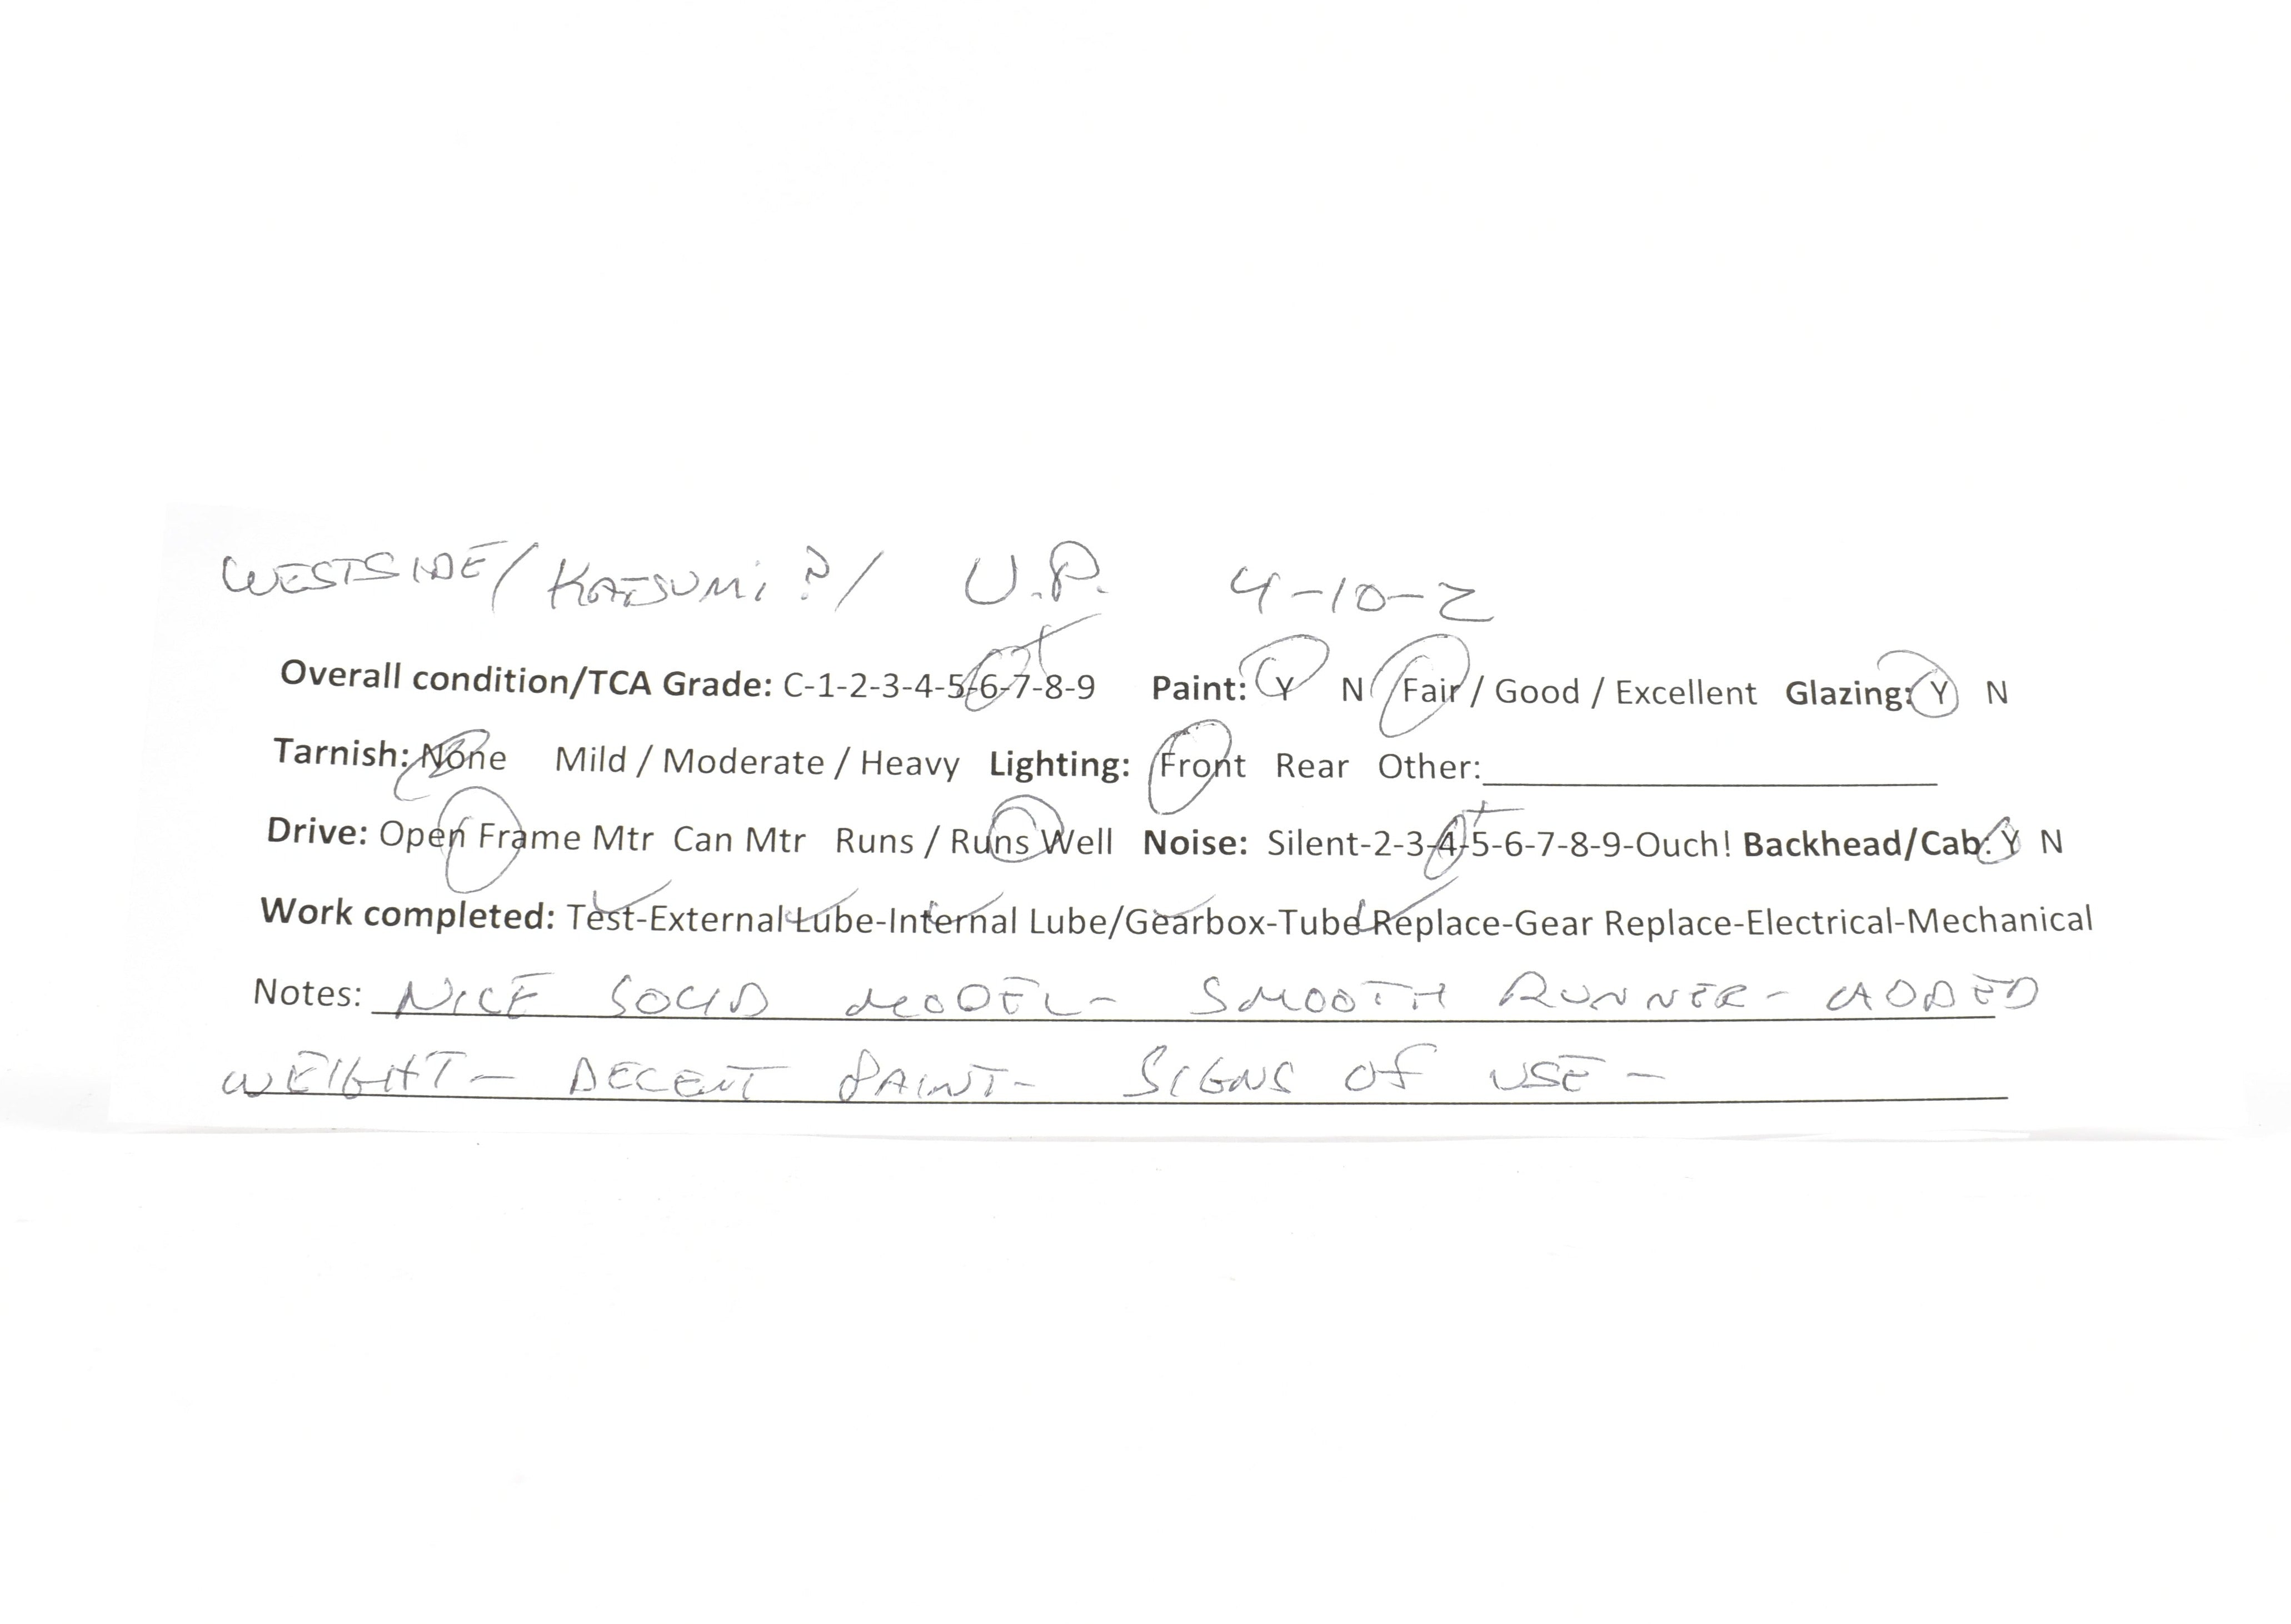 WESTSIDE / KATSUMI ? / U.P. 4-10-2
Overall condition/TCA Grade: C-1-2-3-4-5-6-7-8-9 Paint: Y N Fair / Good / Excellent Glazing: Y N
Tarnish: None Mild / Moderate / Heavy Lighting: Front Rear Other:
Drive: Open Frame Mtr Can Mtr Runs / Runs Well Noise: Silent-2-3-4-5-6-7-8-9-Ouch! Backhead/Cab: Y N
Work completed: Test-External Lube-Internal Lube/Gearbox-Tube Replace-Gear Replace-Electrical-Mechanical
Notes: NICE SOLID MODEL - SMOOTH RUNNER - ADDED
WEIGHT - DECENT PAINT - SIGNS OF USE -